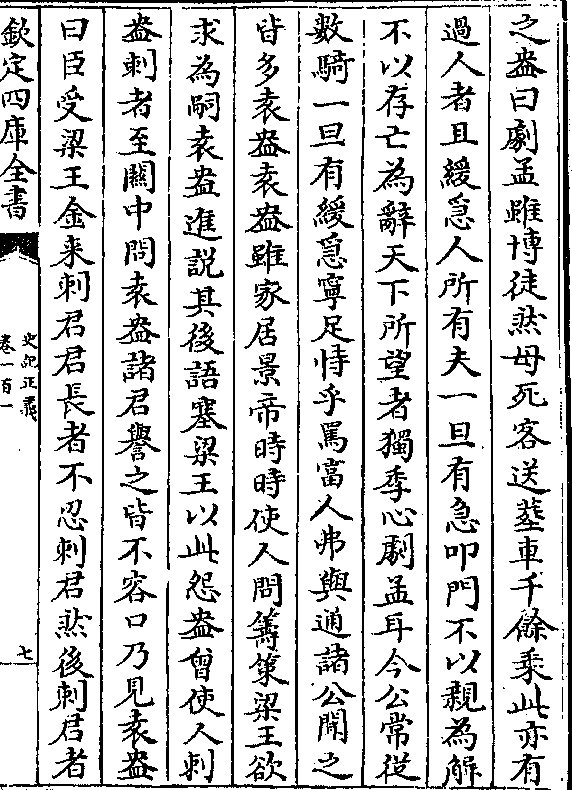 之盎曰劇孟雖博徒然母死客送葬車千餘乘此亦有
過人者且緩急人所有夫一旦有急叩門不以親為解
不以存亡為辭天下所望者獨季心劇孟耳今公常從
數騎一旦有緩急寧足恃乎罵富人弗與通諸公聞之
皆多袁盎袁盎雖家居景帝時時使人問籌策梁王欲
求為嗣袁盎進說其後語塞梁王以此怨盎曾使人刺
盎刺者至關中問袁盎諸君譽之皆不容口乃見袁盎
曰臣受梁王金来刺君君長者不忍刺君然後刺君者
欽定四庫全書
史記正義
卷一百一
七